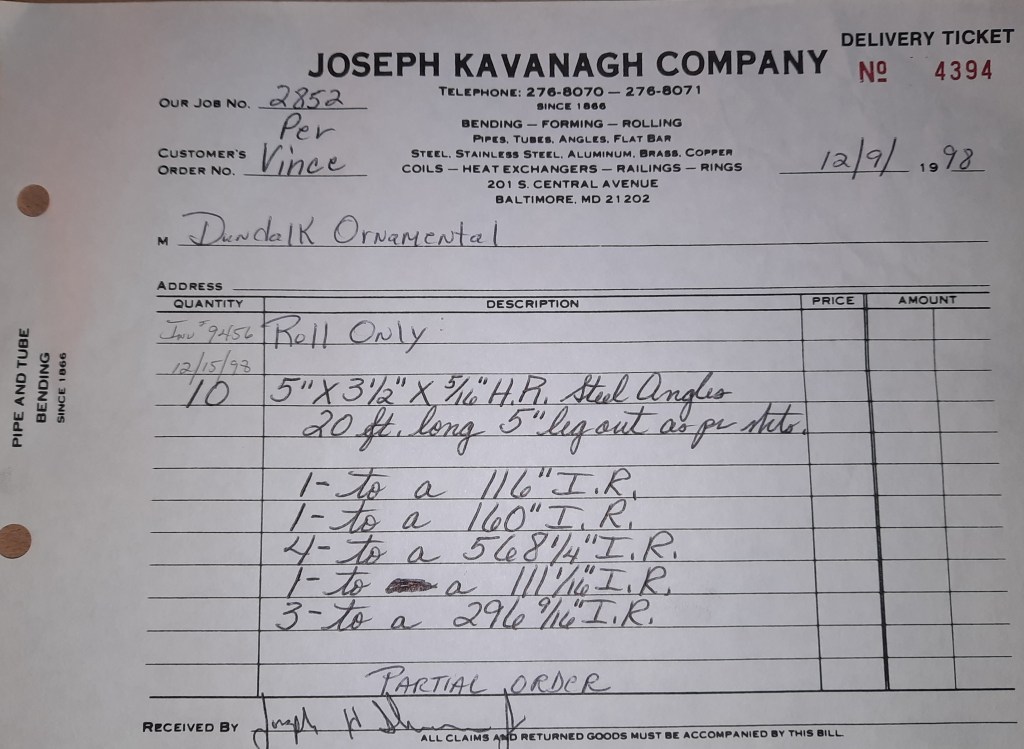 DELIVERY TICKET
JOSEPH KAVANAGH COMPANY
No 4394
TELEPHONE: 276-8070 — 276-8071
SINCE 1866
OUR JOB NO. 2852
BENDING — FORMING — ROLLING
PIPES, TUBES, ANGLES, FLAT BAR
Per
CUSTOMER'S ORDER NO. Vince
STEEL, STAINLESS STEEL, ALUMINUM, BRASS, COPPER
COILS — HEAT EXCHANGERS — RAILINGS — RINGS
12/9/ 1998
201 S. CENTRAL AVENUE
BALTIMORE, MD 21202
M Dundalk Ornamental
ADDRESS
QUANTITY DESCRIPTION PRICE AMOUNT
Inv # 9456 Roll Only
12/15/98
10 5" X 3 1/2" X 5/16" H.R. Steel Angles
20 ft. long 5" leg out as per
1- to a 116" I.R.
1- to a 160" I.R.
4- to a 568 1/4" I.R.
1- to a 111 1/16" I.R.
3- to a 296 9/16" I.R.
PARTIAL ORDER
RECEIVED BY Joseph H
ALL CLAIMS AND RETURNED GOODS MUST BE ACCOMPANIED BY THIS BILL
PIPE AND TUBE
BENDING
SINCE 1866